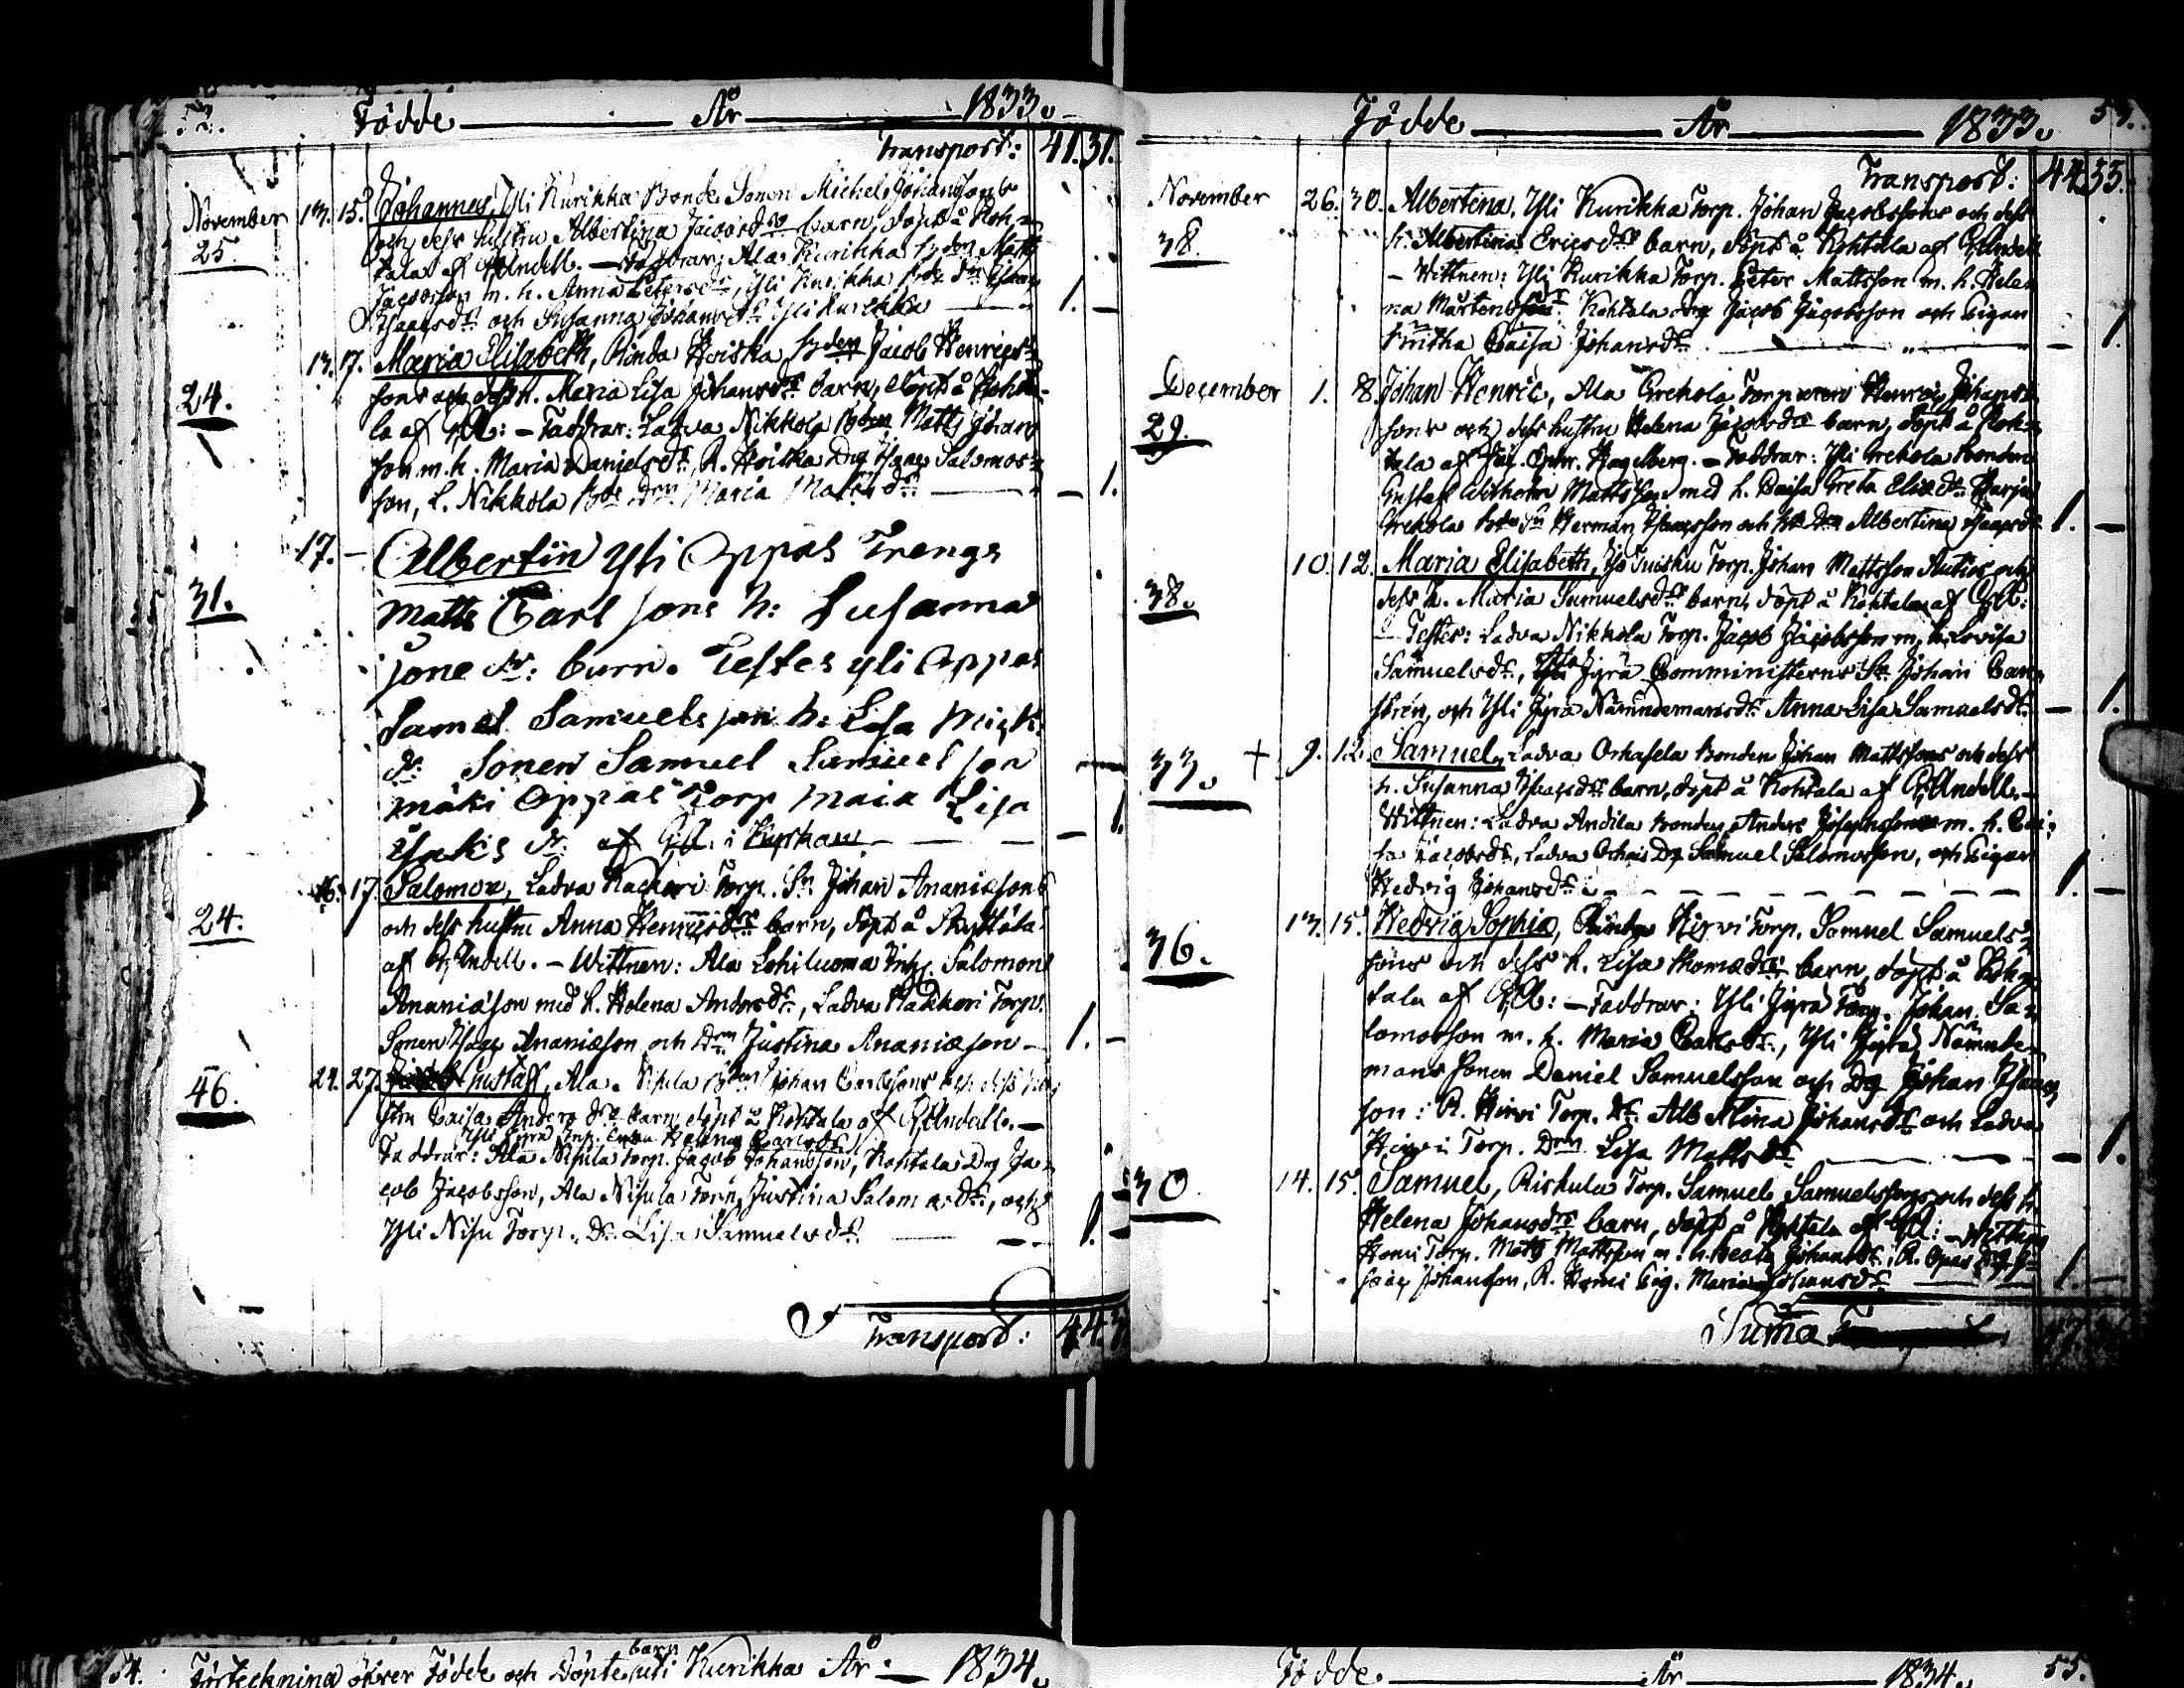 52. Födde År 1833.
Transport: 41. 31.
November 13. 15. Johannes, Yli Kurikka Bonde Sonen Michel Johanssons
25. och dess hustru Albertina Jacobsdrs barn, döpt å Koh=
tala af Andell. — Faddrar: Ala Kurikka Bden Matts
Jacobsson m. h. Anna Petersdr, Yli Kurikka
Isaacsdr och Susanna Johansdr Yli Kurikka 1. —
13. 17. Maria Elisabeth, Rinda Koiska, Bden Jacob Henrics=
24. sons och dess h. Maria Lisa Johansdrs barn, döpt å Kohta=
la af GA: — Faddrar: Ladva Nikkola Bden Matts Johans
son m. h. Maria Danielsdr, R. Koiska Dg Isaac Salomos=
son, L. Nikkola Bde Dtrn Maria Mattsdr — 1.
17. — Albertin Yli Oppas Trengs
31. Matts Carl sons h: Susanna
sone dr: barn. Testes yli Oppas
Samel Samuels son h: Lisa Mick
dr Sonen Samuel Samuel son
mäki Oppas Torp Maia Lisa
Isakis dr. af GA. i — 1.
16. 17. Salomon, Ladva Rackori Torp. Sn Johan Ananiæsons
24. och dess hustru Anna Henricsdrs barn, döpt å
af G. Andell. — Wittnen: Ala Lohiluoma Inh. Salomon
Ananiæson med h. Helena Andersdr, Ladva Rackkori Torp.
Sonen Isaac Ananiæson och Dtrn Justina Ananiæson — 1. —
24. 27. Gustaff, Ala Nisula Bden Johan Carlssons och dess hu=
46. stru Caisa Anders drs barn, döpt å Kohtala af G. Andell. —
Yli Jyrä Inh. Enkan Helena Carlsdr
Faddrar: Ala Nisula Torp. Jacob Johansson, Kohtala Dg Ja=
cob Jacobsson, Ala Nisula Torp. Justina Salom dr, och
Yli Nisu Torp. Dr. Lisa Samuelsdr — 1. —
Transport: 44.
Födde År 1833. 53.
Transport: 44. 35.
November 26. 30. Albertina, Yli Kurikka Torp. Johan Jacobssons och dess
38. h. Albertina Ericsdrs barn, döpt å Kohtala af G. Andell
— Wittnen: Yli Kurikka Torp. Peter Mattsson m. h. Hele=
na Mårtensdr. Kohtala Dg Jacob Jacobsson och Pigan
Caisa Johansdr — 1.
December 1. 8. Johan Henric, Ala Grekola Torparen Henric Johans=
29. sons och dess hustru Helena Jacobsdrs barn, döpt å Koh=
tala af Hagelberg. — Faddrar: Yli Grekola Bonden
Gustaf Wilhelm Mattsson med h. Caisa Greta Eliædr Harja
Grekola Bde Sn Herman Isaacsson och Bde Dtrn Albertina Isaacsdr 1. —
10. 12. Maria Elisabeth, Iso Tuisku Torp. Johan Mattsson Auttios och
38. dess h. Maria Samuelsdrs barn, döpt å Kohtala af GA:
— Testes: Ladva Nikkola Torp. Jacob Jacobsson m. h. Lovisa
Samuelsdr, Jyrä Comministerns Sn Johan
strén, och Yli Jyrä Nämndemansdr Anna Lisa Samuelsdr. — 1.
+ 9. 12. Samuel, Ladva Orhasela Bonden Johan Mattssons och dess
33. h. Susanna Isaacsdrs barn, döpt å Kohtala af G. Andell. —
Wittnen: Ladva Andila Bonden Anders Josephsson m. h. Cai=
sa Jacobsdr, Ladva Dg Samuel Salomosson, och Pigan
Hedvig Johansdr — 1. —
13. 15. Hedvig Sophia, Hirvi Torp. Samuel Samuels=
36. sons och dess h. Lisa Thomædrs barn, döpt å Koh=
tala af GA: — Faddrar: Yli Jyrä Torp. Johan Sa=
lomosson m. h. Maria Carlsdr, Yli Jyrä Nämnde=
mans Sonen Daniel Samuelsson och Dg Johan Isaacs
son: R. Hirvi Torp. Dr. Albertina Johansdr och Ladva
Hirvi Torp. Dtrn Lisa Mattsdr — 1.
14. 15. Samuel, Riskula Torp. Samuel Samuelssons och dess h.
30. Helena Johansdrs barn, döpt å Kohtala af GA: — Wittnen
Torp. Matts Mattsson m. h. Beata Johansdr, R. Opas Dg I=
saac Johansson, R. Pig. Maria Johansdr 1. —
Suma
54. Förteckning öfver Födde och Döpte barn uti Kurikka År — 1834.
Födde År 1834. 55.